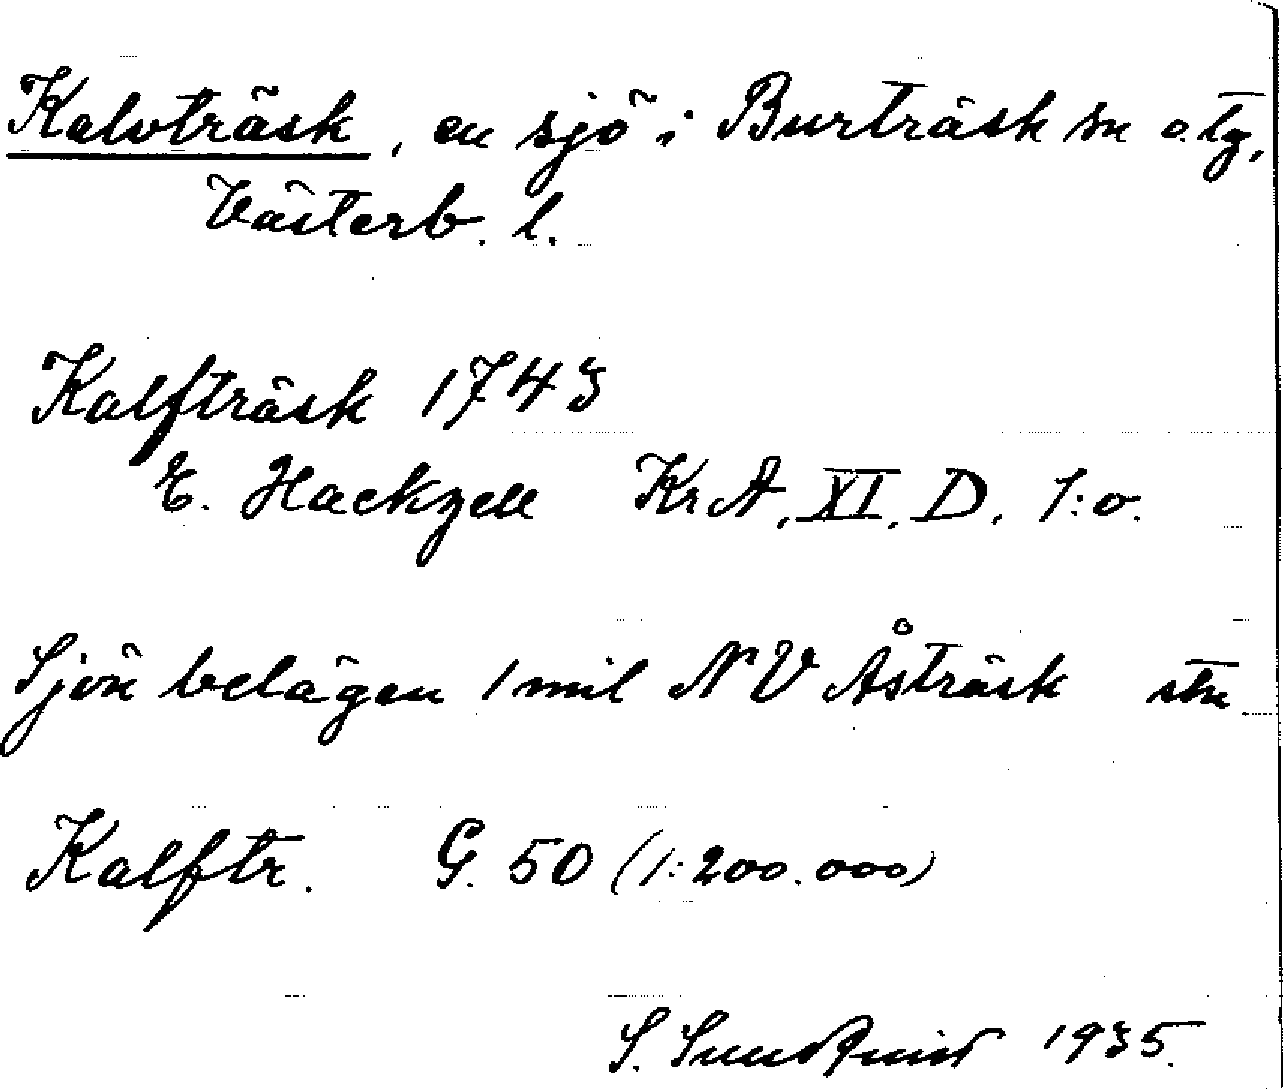 Kalvträsk, en sjö i Burträsk sn o. tg,
Västerb. l.
Kalfträsk 1743
E. Hackzell KrA, XI, D, 1:o.
Sjön belägen 1 mil NV Åsträsk stn
Kalftr. G. 50 (1:200.000)
S. Sundquist 1935.